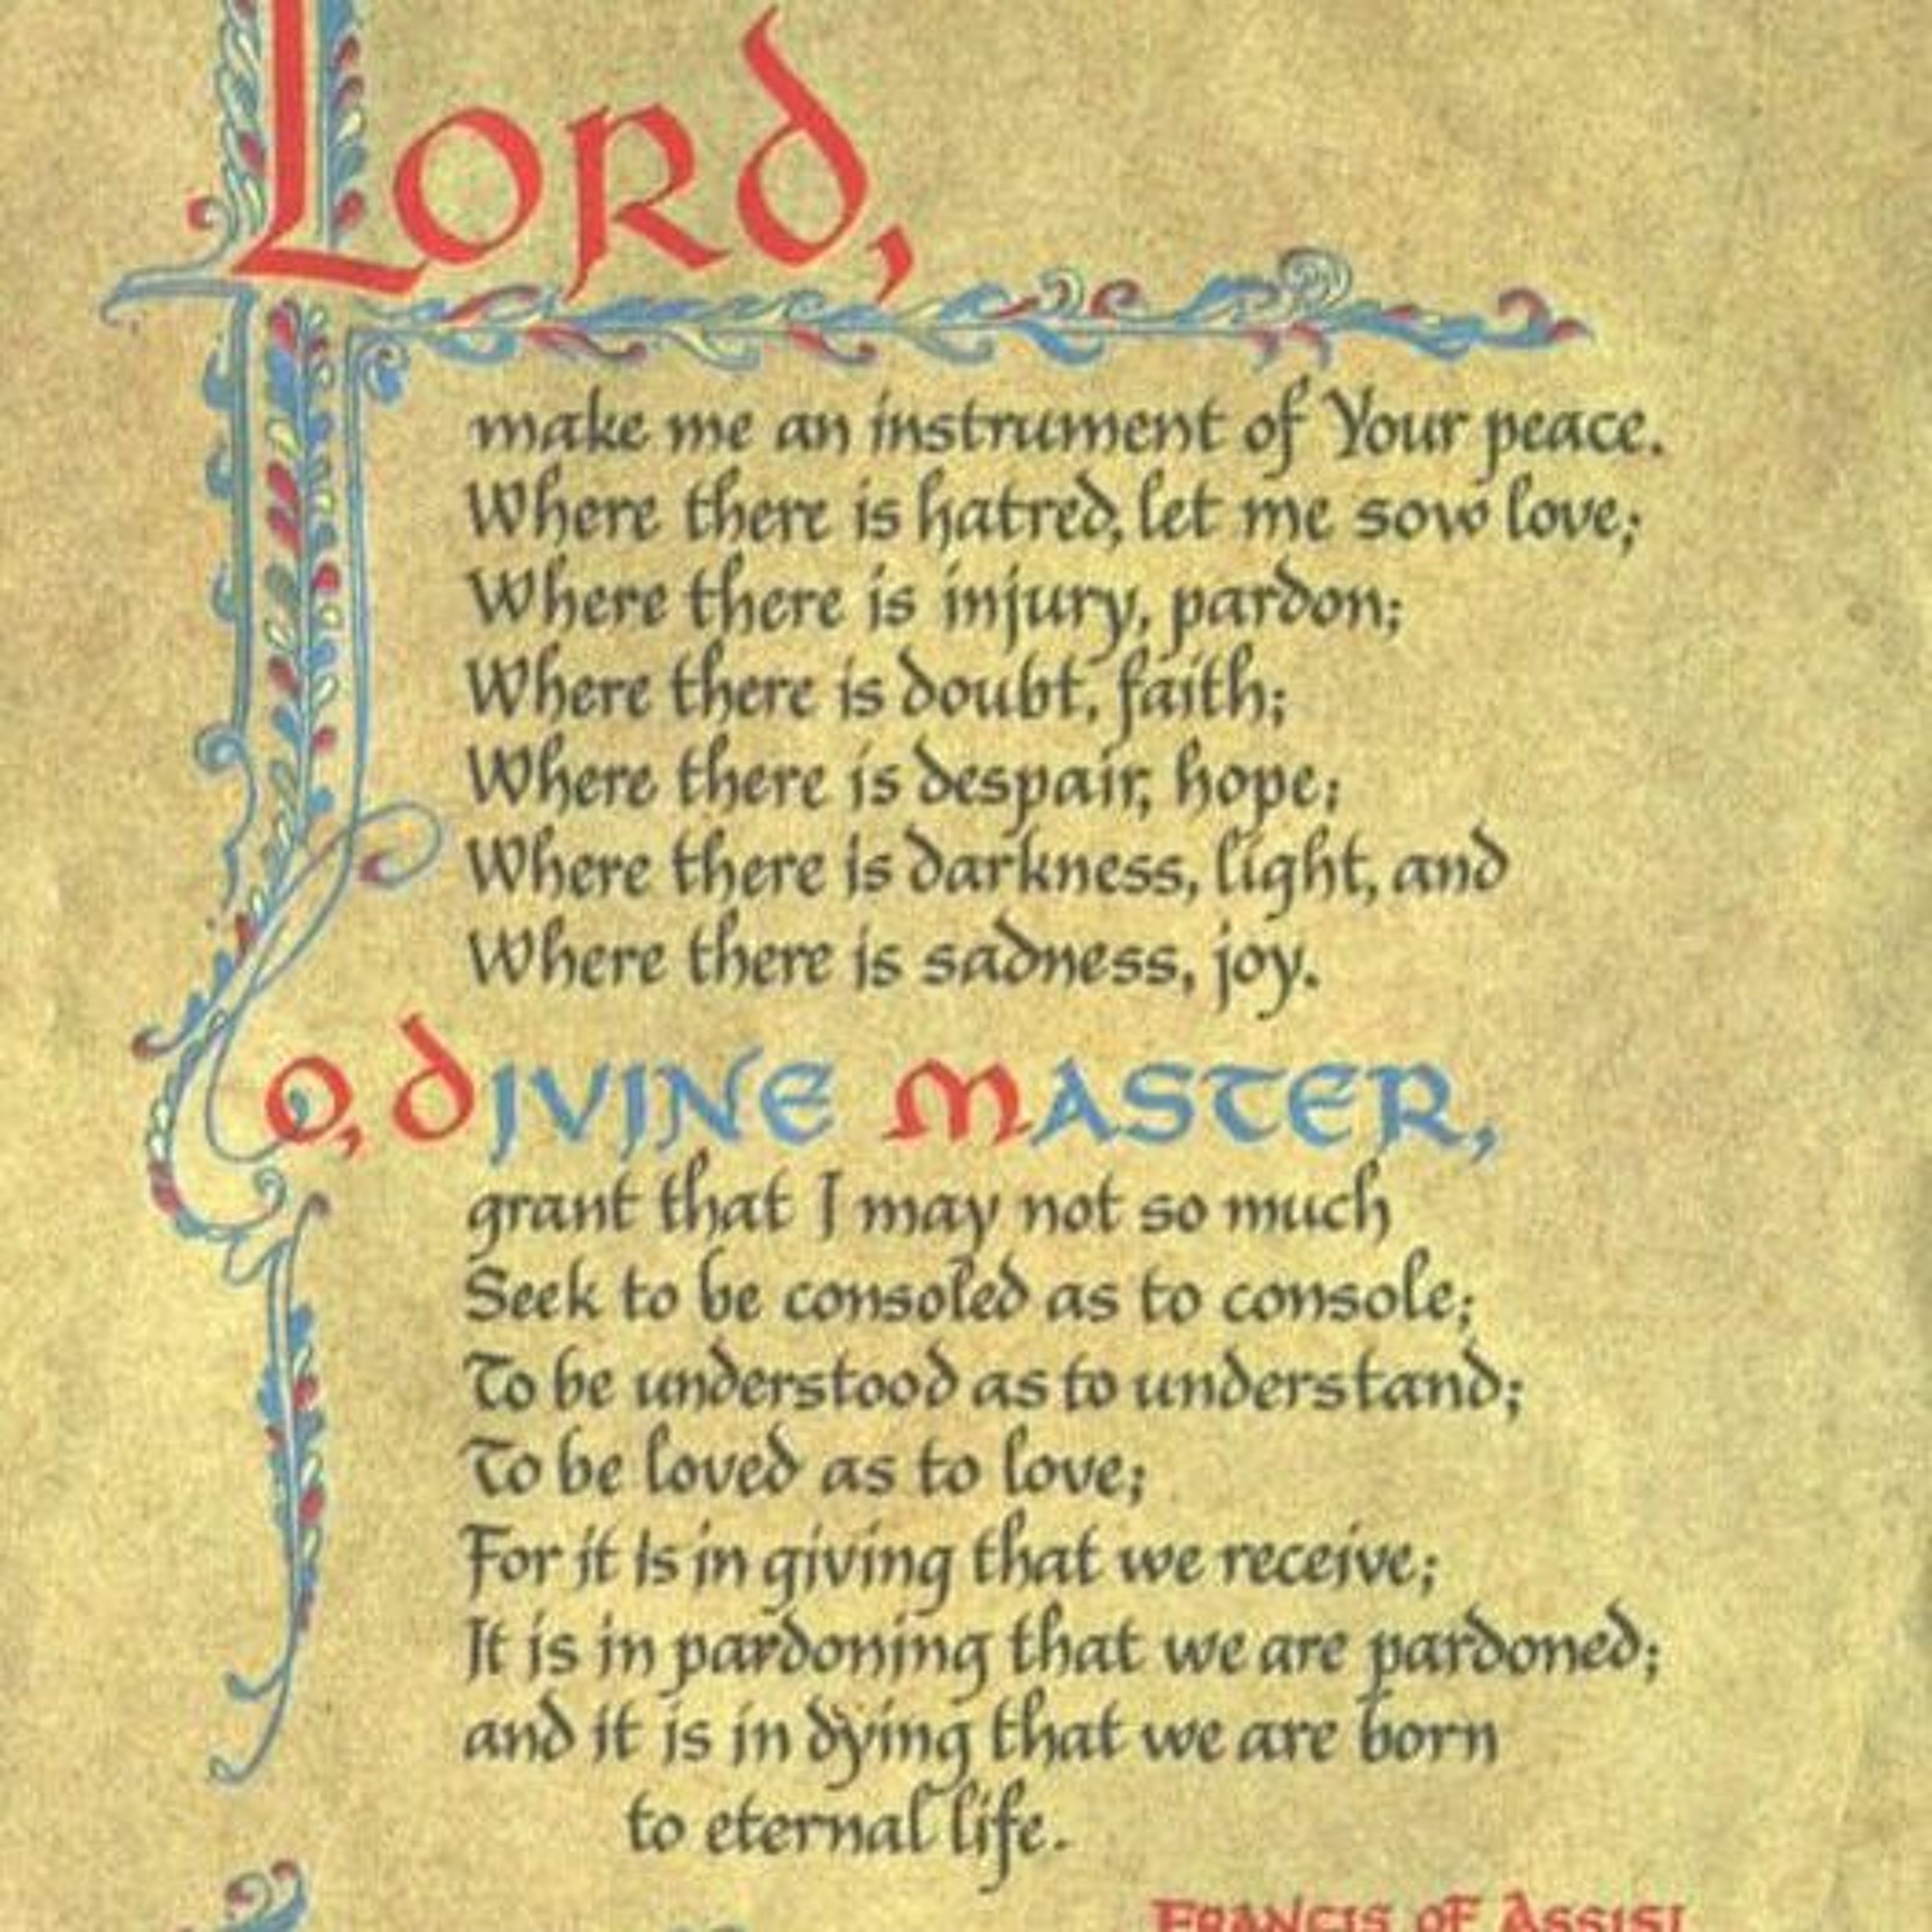 Lord,
make me an instrument of Your peace.
Where there is hatred, let me sow love;
Where there is injury, pardon;
Where there is doubt, faith;
Where there is despair, hope;
Where there is darkness, light, and
Where there is sadness, joy.
O, DIVINE MASTER,
grant that I may not so much
Seek to be consoled as to console;
To be understood as to understand;
To be loved as to love;
For it is in giving that we receive;
It is in pardoning that we are pardoned;
and it is in dying that we are born
to eternal life.
FRANCIS OF ASSISI